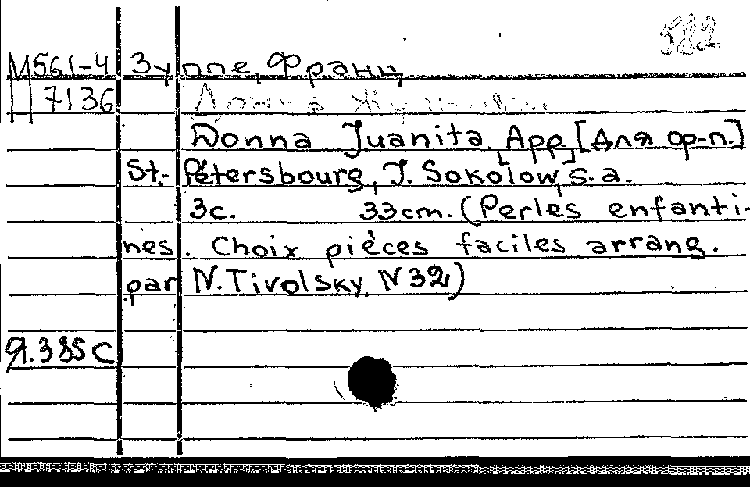 522
М561-4 Зуппе, Франц
7136 Донна Жуанита
Donna Juanita, Арр. [для ор-п.]
St.-Pétersbourg, J. Sokolow, s.a.
3с. 33cm. (Perles enfanti-
nes. Choix pièces faciles arrang.
par N. Tivolsky, N 32)
Я.385с